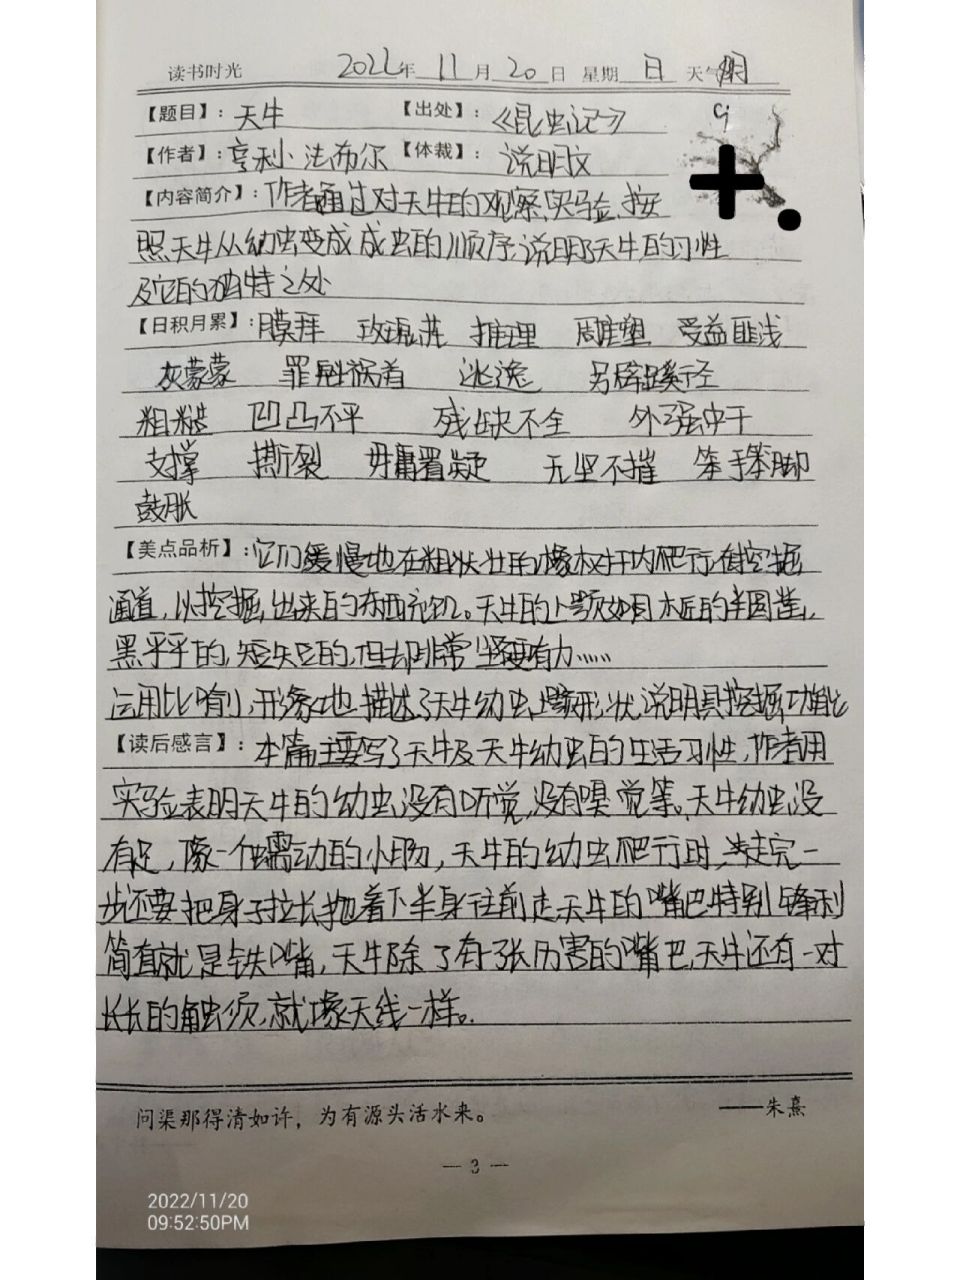 读书时光 2022年 11 月 20 日 星期 日 天气 阴
【题目】: 天牛 【出处】: 《昆虫记》
【作者】: 亨利·法布尔 【体裁】: 说明文
【内容简介】: 作者通过对天牛的观察、实验、按
照天牛从幼虫变成成虫的顺序,说明了天牛的习性
及它的独特之处
【日积月累】: 膜拜 玫瑰 推理 雕塑 受益匪浅
灰蒙蒙 罪魁祸首 逃逸 另辟蹊径
粗糙 凹凸不平 残缺不全 外强中干
支撑 撕裂 毋庸置疑 无坚不摧 笨手笨脚
鼓胀
【美点品析】: 它们缓慢地在粗壮的橡树干内爬行,挖掘
通道,以挖掘出来的东西充饥。天牛的上颚如同木匠的半圆凿,
黑乎乎的,短短的,但却非常坚硬有力……
运用比喻,形象地描述了天牛幼虫上颚形状,说明其挖掘功能
【读后感言】: 本篇主要写了天牛及天牛幼虫的生活习性,作者用
实验表明天牛的幼虫没有听觉,没有嗅觉等。天牛幼虫没
有足,像一个蠕动的小肠,天牛的幼虫爬行时,走完一
步还要把身子拉长,拖着下半身往前走,天牛的嘴巴特别锋利
简直就是铁嘴,天牛除了有一张厉害的嘴巴,天牛还有一对
长长的触须,就像天线一样。
问渠那得清如许，为有源头活水来。 ——朱熹
— 3 —
2022/11/20
09:52:50PM